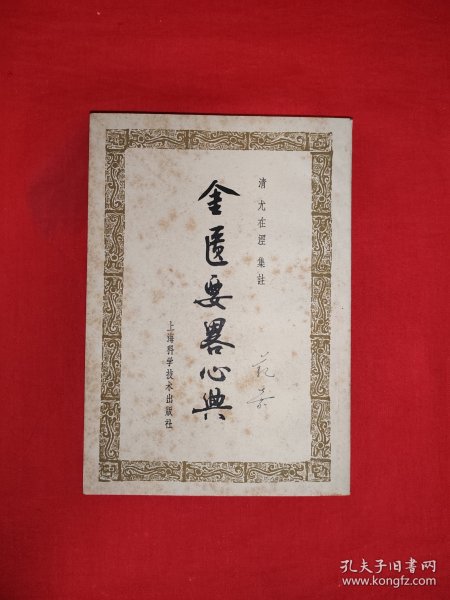 清 尤在涇 集註
金匱要畧心典
上海科学技术出版社
孔夫子旧书网
www.kongfz.com